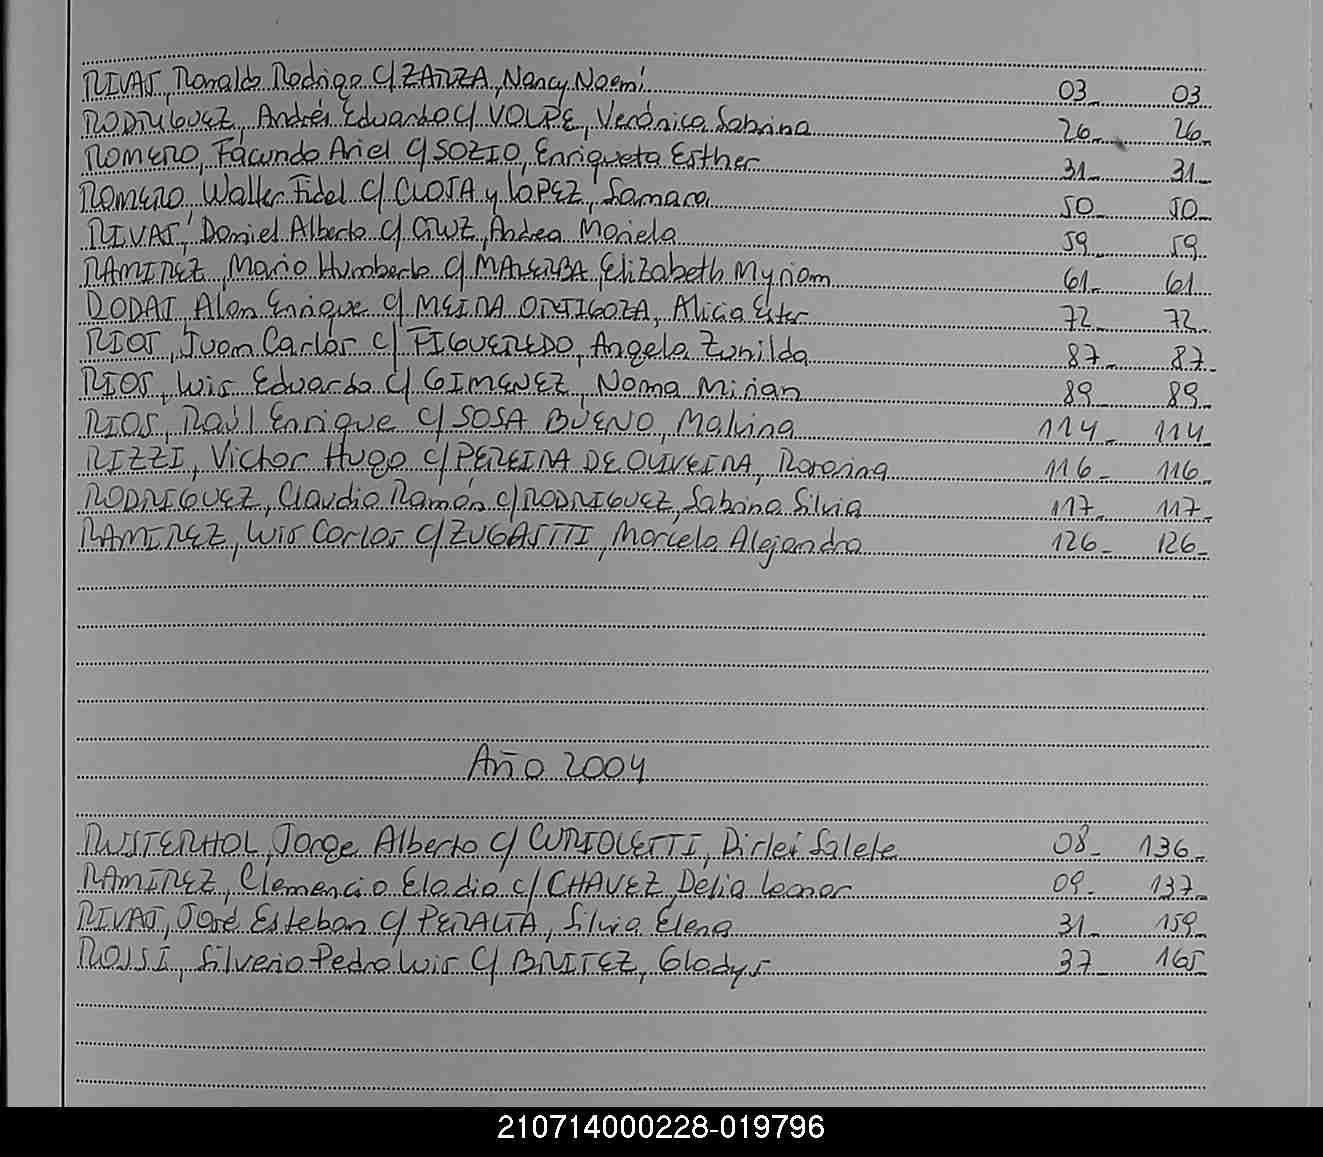 RIVAS, Ronaldo Rodrigo c/ ZARZA, Nancy Noemí 03 03
RODRIGUEZ, Andrés Eduardo c/ VOLPE, Verónica Sabrina 26 26
ROMERO, Facundo Ariel c/ SOZIO, Enriqueta Esther 31 31
ROMERO Walter Fidel c/ CLOSA y LOPEZ, Samara 50 50
RIVAS, Daniel Alberto c/ CRUZ, Andrea Mariela 59 59
RAMIREZ, Mario Humberto c/ MALERBA, Elizabeth Myriam 61 61
RODAS, Alan Enrique c/ MEIRA ORTIGOZA, Alicia Ester 72 72
RIOS, Juan Carlos c/ FIGUEREDO, Angela Zunilda 87 87
RIOS, Luis Eduardo c/ GIMENEZ, Norma Mirian 89 89
RIOS, Raúl Enrique c/ SOSA BUENO, Malvina 114 114
RIZZI, Victor Hugo c/ PEREIRA DE OLIVEIRA, Rorosina 116 116
RODRIGUEZ, Claudio Ramón c/ RODRIGUEZ, Sabrina Silvia 117 117
RAMIREZ, Luis Carlos c/ ZUGASTTI, Marcela Alejandra 126 126
Año 2004
RUSTERHOL, Jorge Alberto c/ CURIOLETTI, Dirlei Salete 08 136
RAMIREZ, Clemencio Eladio c/ CHAVEZ, Delia Leonor 09 137
RIVAS, José Esteban c/ PERALTA, Silvia Elena 31 159
ROSSI, Silverio Pedro Luis c/ BRITEZ, Gladys 37 165
210714000228-019796